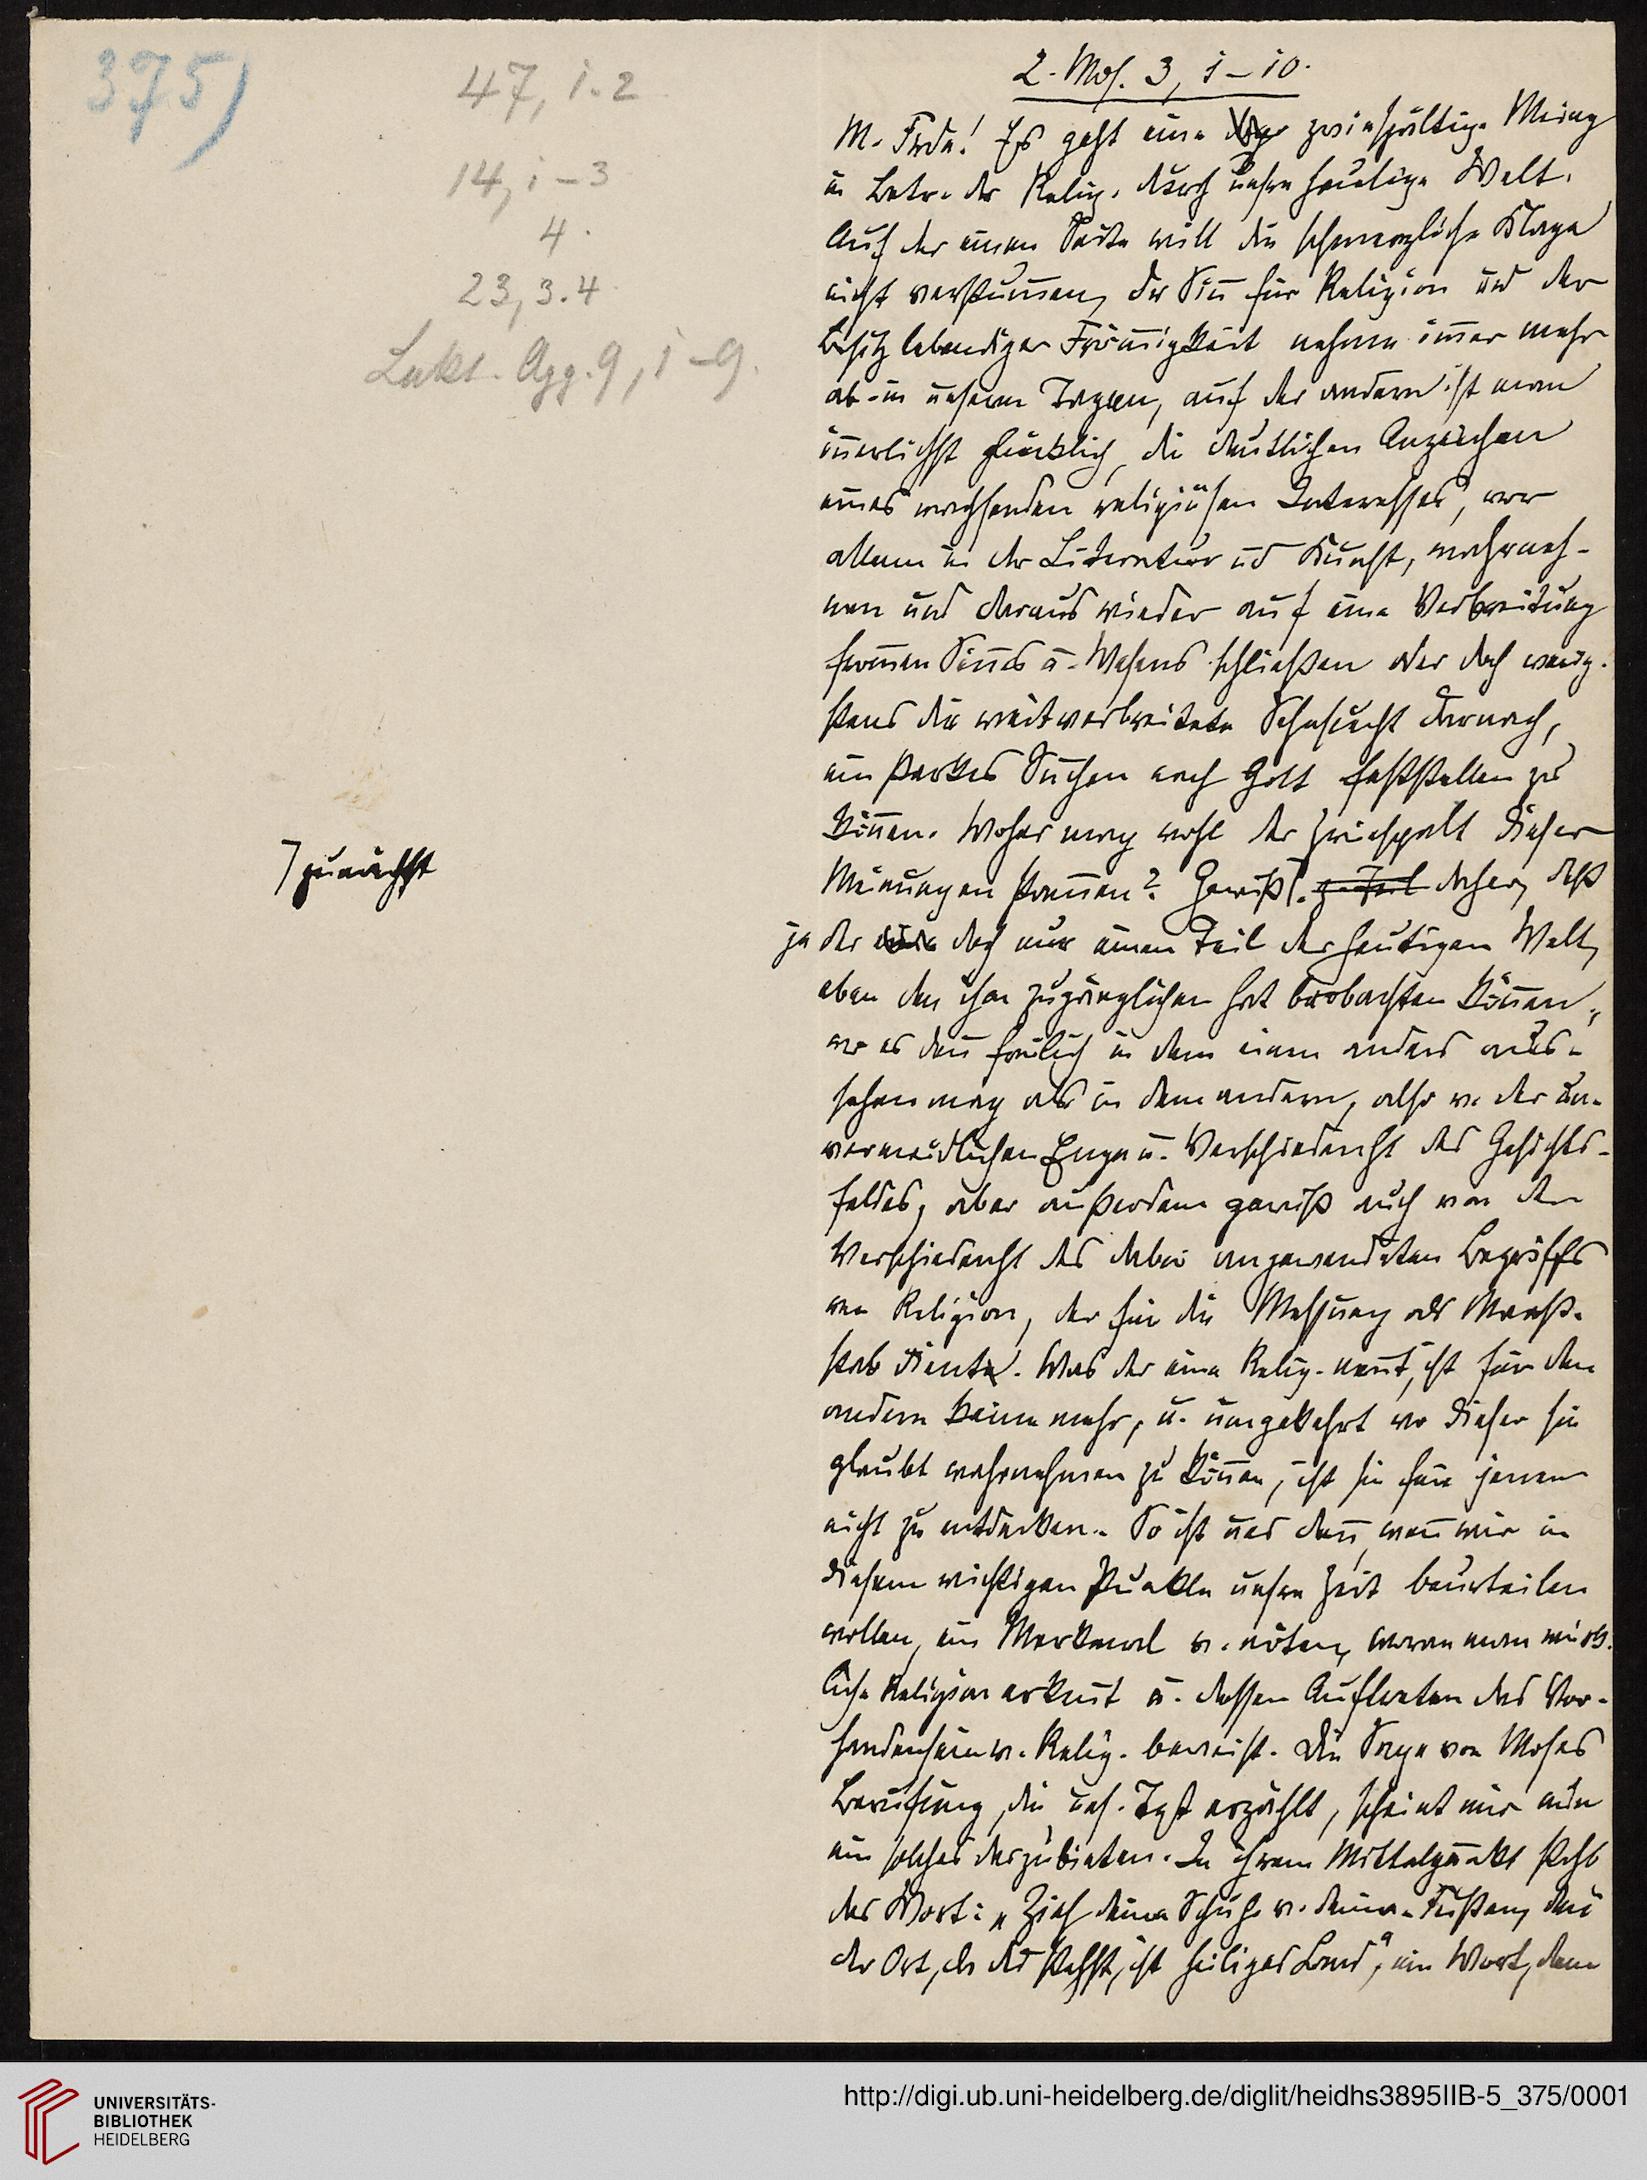 375)
47, 1.2
14, 1-3
4.
23, 3.4
Lekt. Agg. 9, 1-9.
2. Mos. 3, 1-10.
M. Frde! Es geht eine zwiespältige Meing
in Betr. der Relig. durch unsre heutige Welt.
Auf der einen Seite will die schmerzliche Klage
nicht verstum̅en, der Sin̅ für Religion und der
Besitz lebendiger From̅igkeit nehme im̅er mehr
ab in unseren Tagen, auf der andern ist man
in̅erlichst glücklich, die deutlichen Anzeichen
eines wachsenden religiösen Interesses, vor
allem in der Literatur ud Kunst, wahrneh-
men und daraus wieder auf eine Verbreitung
from̅en Sin̅es u. Wesens schließen oder doch wenig-
stens die weitverbreitete Sehnsucht darnach,
ein starkes Suchen nach Gott feststellen zu
kön̅en. Woher mag wohl der Zwiespalt dieser
Meinungen stam̅en? Gewiß ⌉ z. Teil daher, daß
⌉ zunächst
ja der eine doch nur einen Teil der heutigen Welt,
eben den ihm zugänglichen hat beobachten kön̅en,
wo es den̅ freilich in dem einen anders aus-
sehen mag als in dem andern, also v. der un-
vermeidlichen Enge u. Verschiedenht des Gesichts-
feldes, aber außerdem gewiß auch von der
Verschiedenht des dabei angewendeten Begriffs
von Religion, der für die Messung als Maaß-
stab diente. Was der eine Relig. nen̅t, ist für den
andern keine mehr, u. umgekehrt wo dieser sie
glaubt wahrnehmen zu kön̅en, ist sie für jenen
nicht zu entdecken. So ist uns den̅, wen̅ wir in
diesem wichtigen Punkte unsre Zeit beurteilen
wollen, ein Merkmal v. nöten, woran man wirk-
liche Religion erken̅t u. dessen Auftreten das Vor-
handensein v. Relig. beweist. Die Sage von Moses
Berufung, die uns. Text erzählt, scheint mir nun
ein solches darzubieten. In ihrem Mittelpunkt steht
das Wort: „Zieh deine Schuhe v. deinen Füßen, den̅
der Ort, da du stehst, ist heiliges Land“, ein Wort, dem
UNIVERSITÄTS-
BIBLIOTHEK
HEIDELBERG
http://digi.ub.uni-heidelberg.de/diglit/heidhs3895IIB-5_375/0001